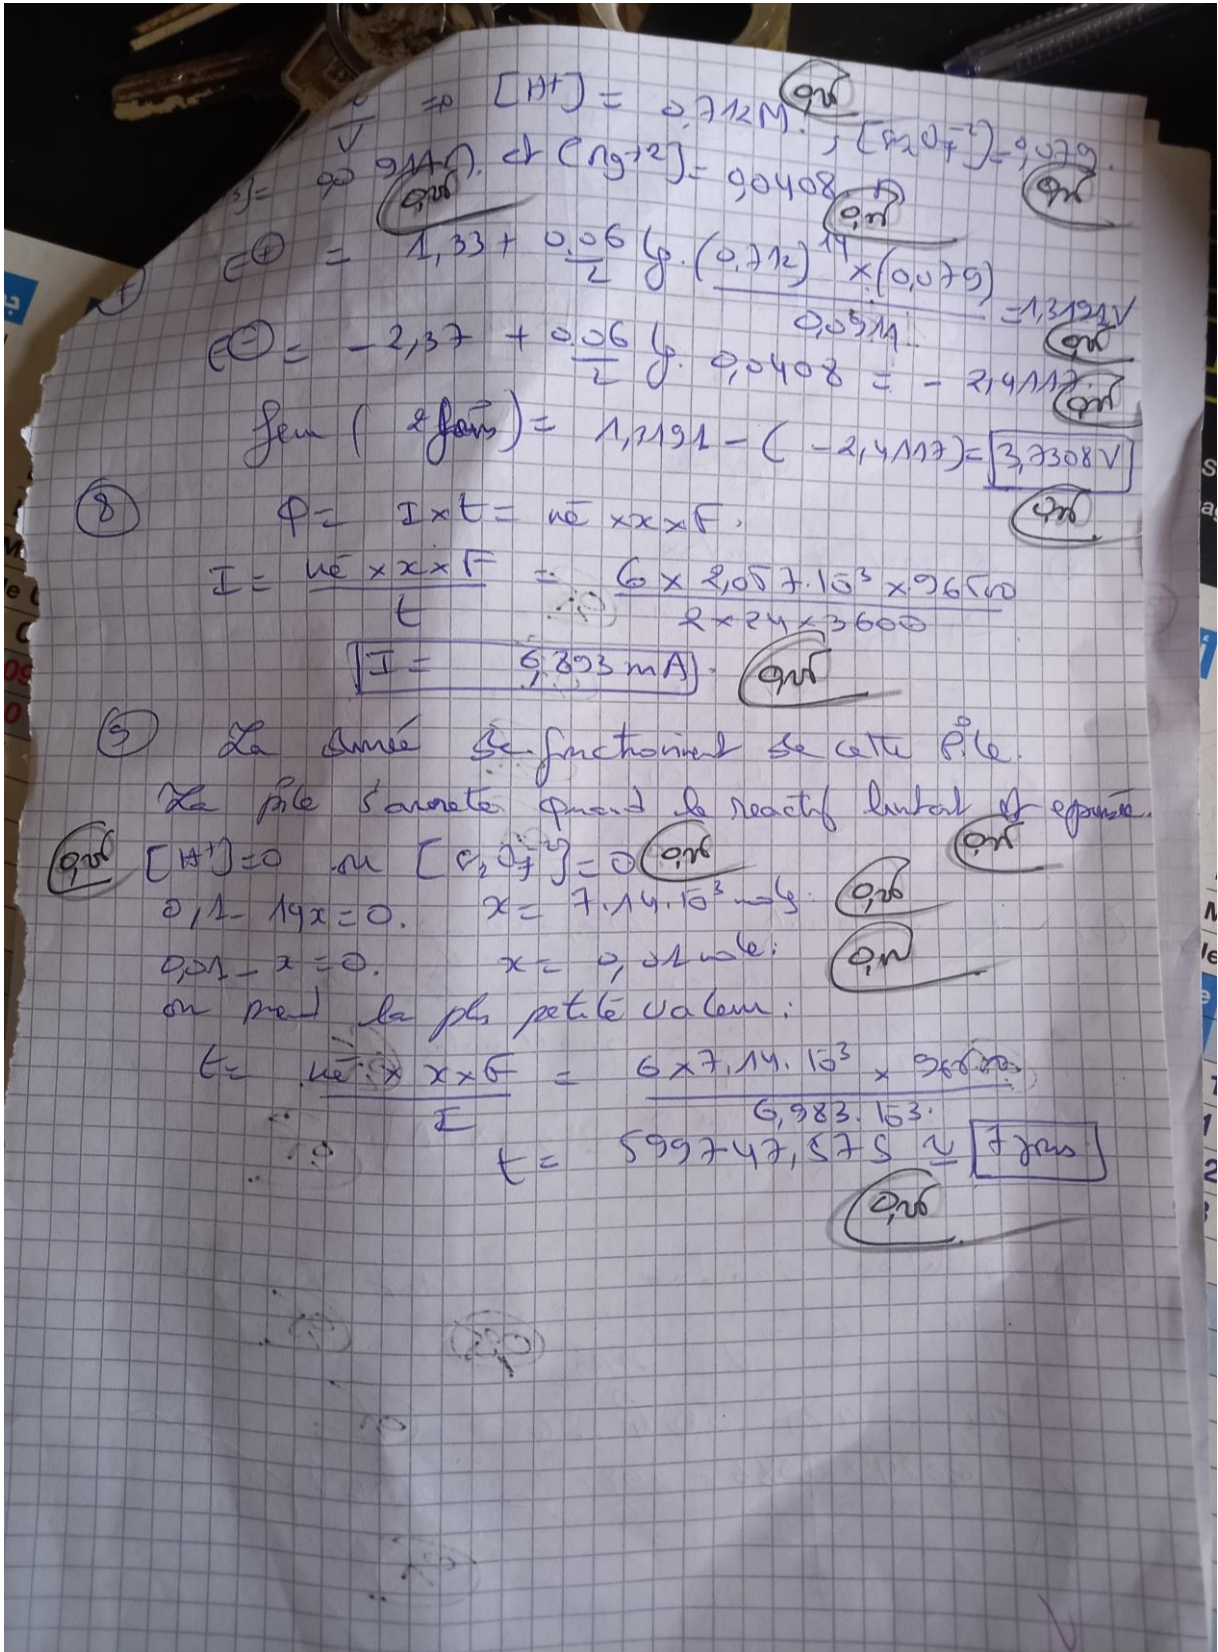 V ⇒ [H+] = 0,712M. ; [Cr2O7-2]=0,079.
et [Mg+2]= 0,0408 M
0,25
7
E⊕ = 1,33 + 0.06/2 lg. (0,712)^14 × (0,079) / = 1,3191V
E⊖ = -2,37 + 0.06/2 lg. 0,0408 = - 2,4117.
fem ( ) = 1,3191 - (-2,4117) = 3,7308V
8 Q = I×t = né × x × F.
I = né × x × F / t = 6 × 2,057.10^-3 × 96500 / 2×24×3600
I = 6,893 mA. 0,25
9 La durée de fonctionnement de cette Pile.
La pile s'arrete quand le reactif limitant est epuisé.
0,25 [H+]=0 ou [Cr2O7-2]=0 0,25
0,1-14x=0. x= 7.14.10^-3 moles. 0,25
0,01-x=0. x= 0,01 mole.
on prend la plus petite valeur:
t= né × x×F / I = 6×7,14.10^-3 × 96500 / 6,983.10^-3.
t = 599747,57 S ≃ 7 jours
0,25